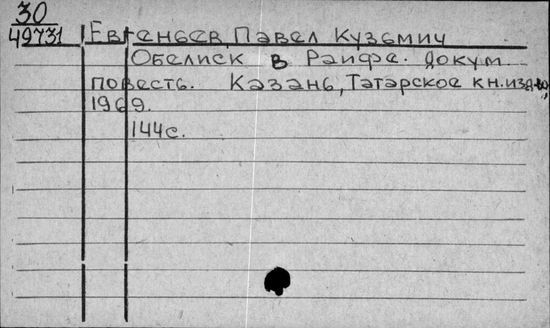 30
49731 Евгеньев, Павел Кузьмич
Обелиск в Раифе. Докум.
повесть. Казань, Татарское кн.изд-во,
1969.
144с.